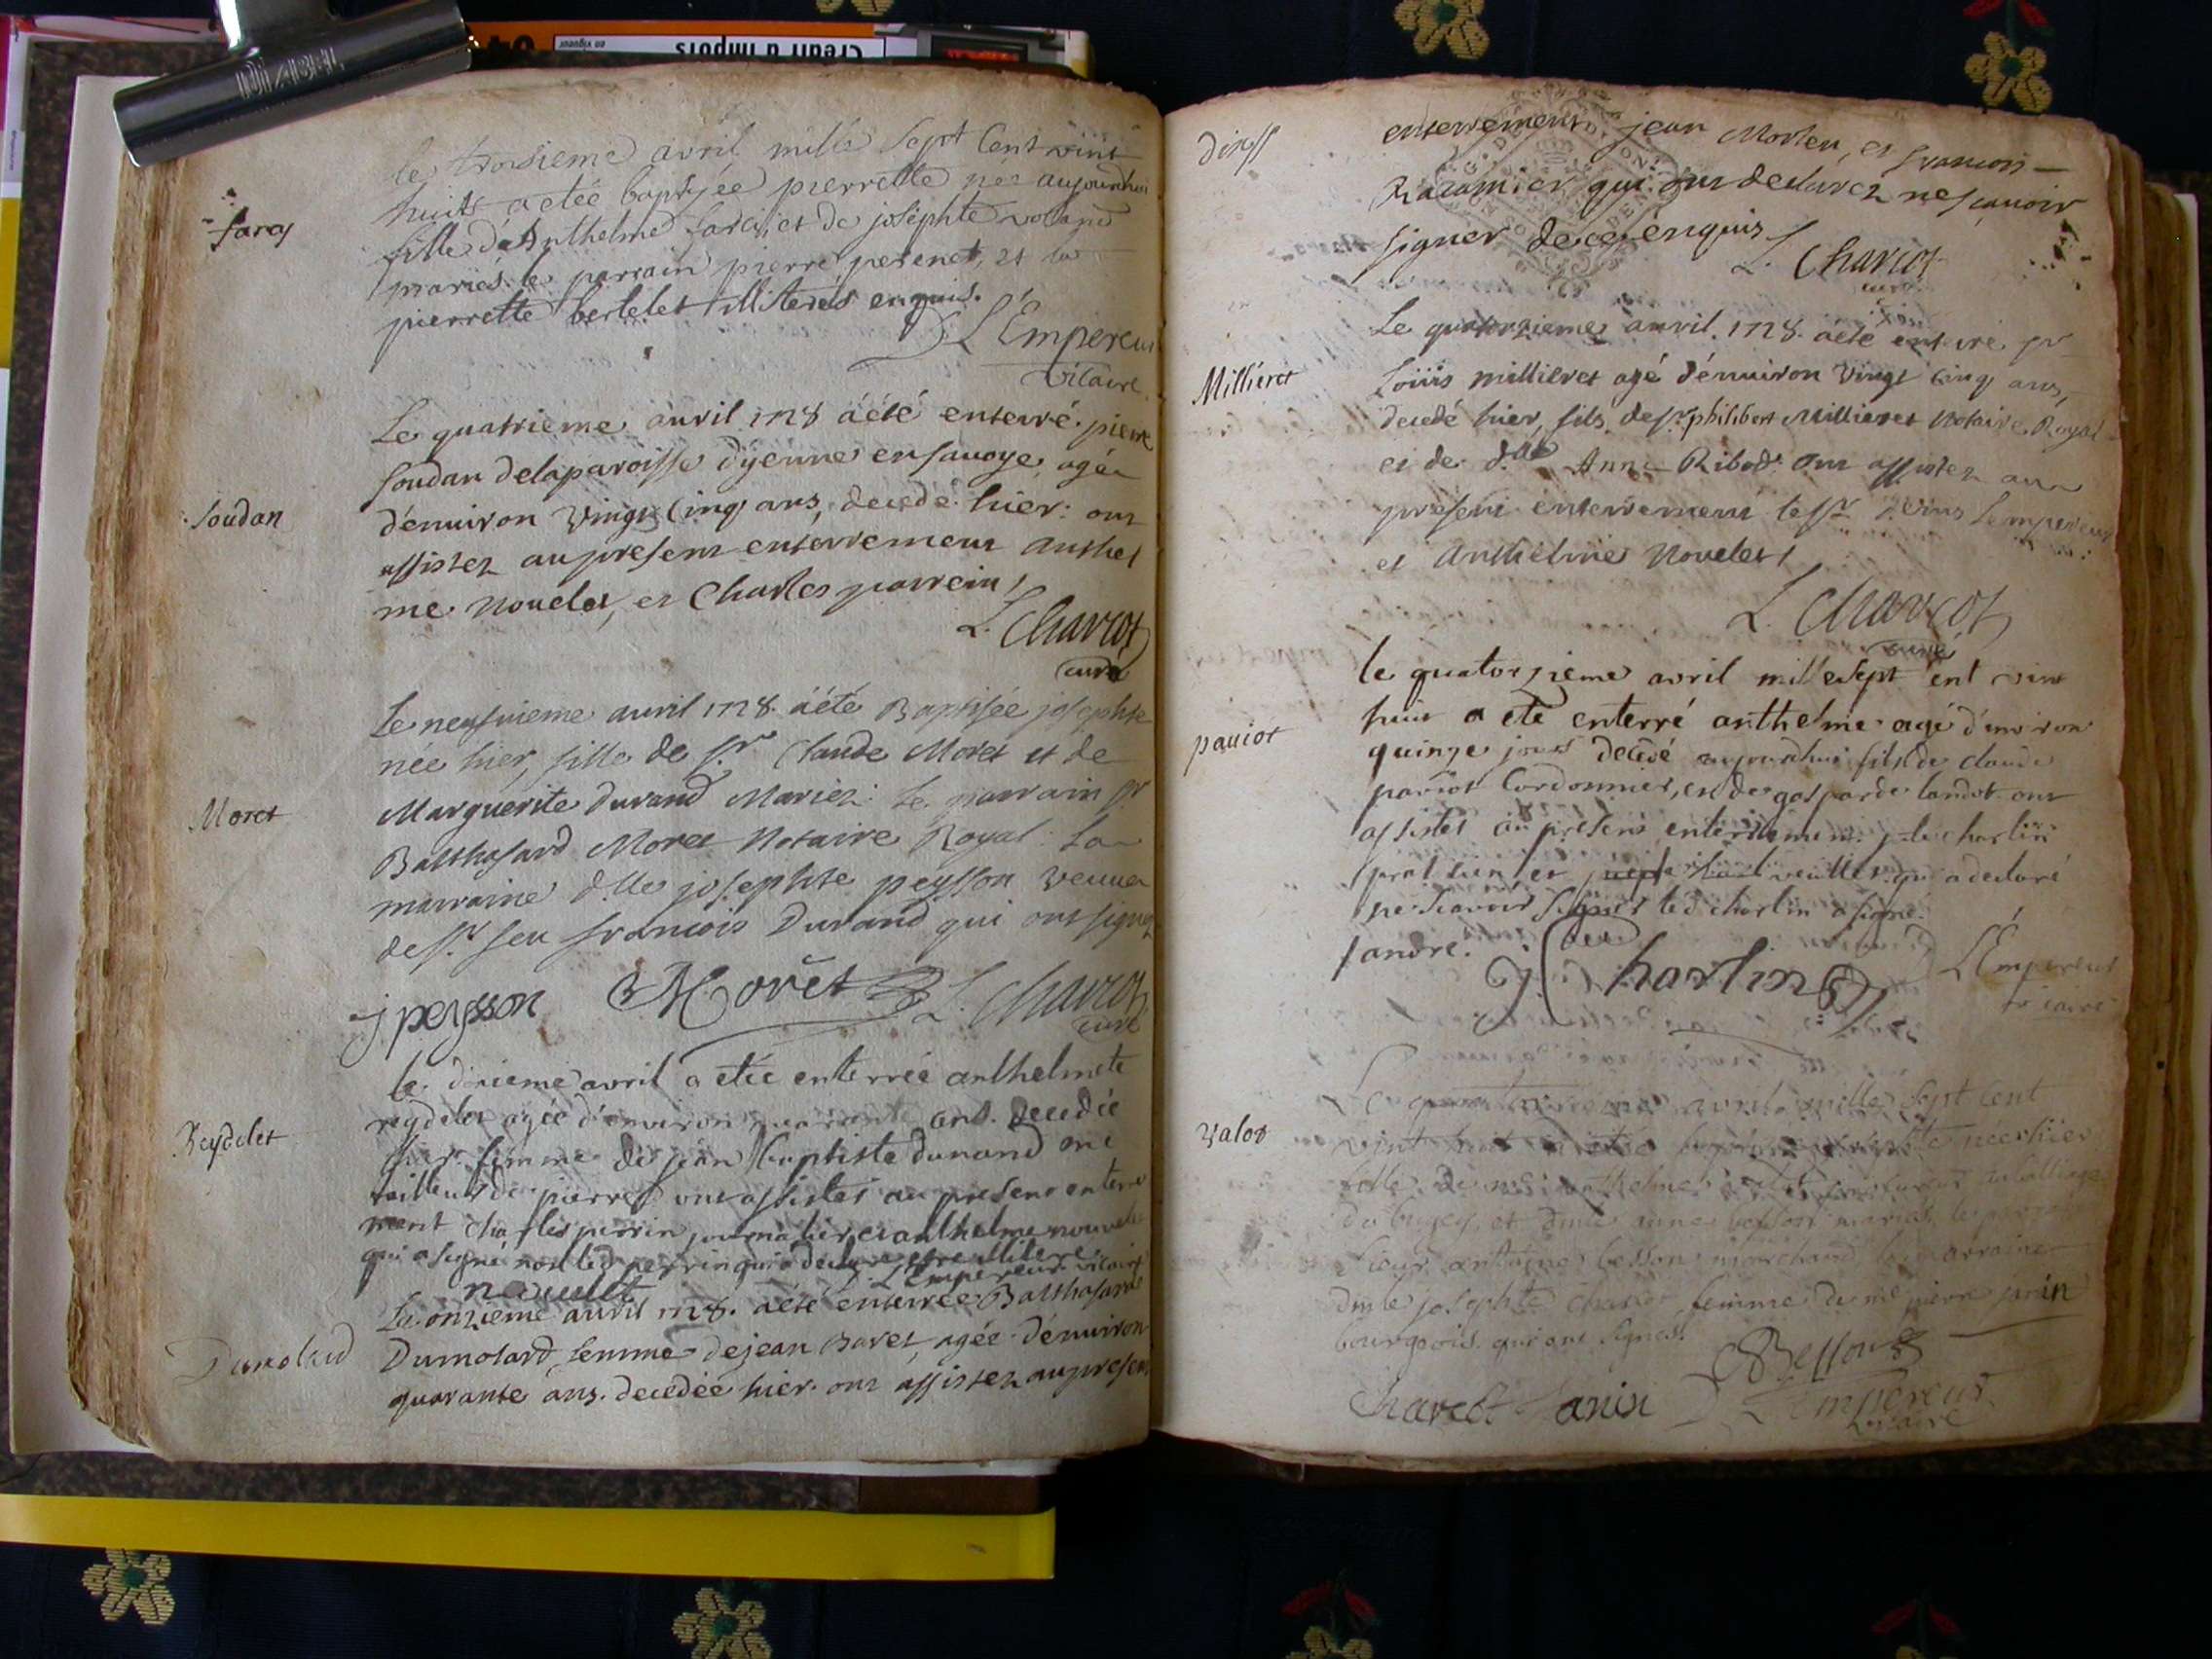 DIABEL
Crédit d'impôts
en vigueur
le troisieme avril mille sept Cent vint
huits a eteé baptisée pierrette née aujourdhui
faraj
fille d'Anthelme et de josephte
mariés le parrain pierre perenet, et la
pierrette bertelet illiterés enquis.
L'Empereur
vicaire
Le quatrieme auril 1728 a été enterré pierre
soudan delaparoisse d'yenne en sauoye agé
Soudan
d'enuiron vingt Cinq ans, decedé hier: ont
assistez au present enterrement anthel
me nouelet, et Charles parrein
L. Charcot
curé
Le neufuieme auril 1728. a été Baptisée josephte
née hier, fille de Sr. Claude Moret et de
Moret
Marguerite Durand Mariez: Le parrain Sr
Balthasard Moret Notaire Royal: La
marraine dlle josephte peysson veuue
de Sr. feu francois Durand qui ont signez
j peysson Moret L. Charcot
curé
le dixieme avril a etée enterrée anthelmete
reydelet agée d'environ quarante ans. decedée
Reydelet
hier femme de jean Baptiste dunand me
tailleur de pierres ont assistés au present enterre
ment charles perrin journalier et anthelme nouvelet
qui a signé non led perrin qui a declaré estre illiteré
nouvelet L'Empereur vicaire
Le onzieme auril 1728. a été enterrée Balthasarde
Dumolard
Dumolard, femme de jean Baret, agée d'enuiron
quarante ans. decedée hier. ont assistez au present
enterrement jean et francois
qui ont declarez ne scauoir
signer de ce enquis
L. Charcot
curé
Le quatorzieme auril. 1728. a été enterré Sr
Millieret
Loüis millieret agé d'enuiron vingt cinq ans,
decedé hier, fils de Sr. philibert Millieret Notaire Royal
et de dlle Anne Ribod. ont assistez au
present enterrement le Sr Lempereur
et anthelme Nouelet
L. Charcot
curé
le quatorzieme avril mille sept cent vint
huit a eté enterré anthelme agé d'environ
pauiot
quinze jours decedé aujourdhui fils de claude
paviot Cordonnier, et de gasparde landot ont
assistés au present enterrement charlin
et veuillet qui a declaré
ne scavoir signer led charlin a signé.
Charlin L'Empereur
vicaire
Le quatorzieme avril mille sept cent
Valot
vint huit a eteé née hier
fille de me anthelme
du bugey, et dmle anne besson mariés, le parrain
sieur antoine besson marchand la marraine
dmle josephte femme de me pierre janin
bourgeois qui ont signés.
Besson
Charcot janin L'Empereur
vicaire